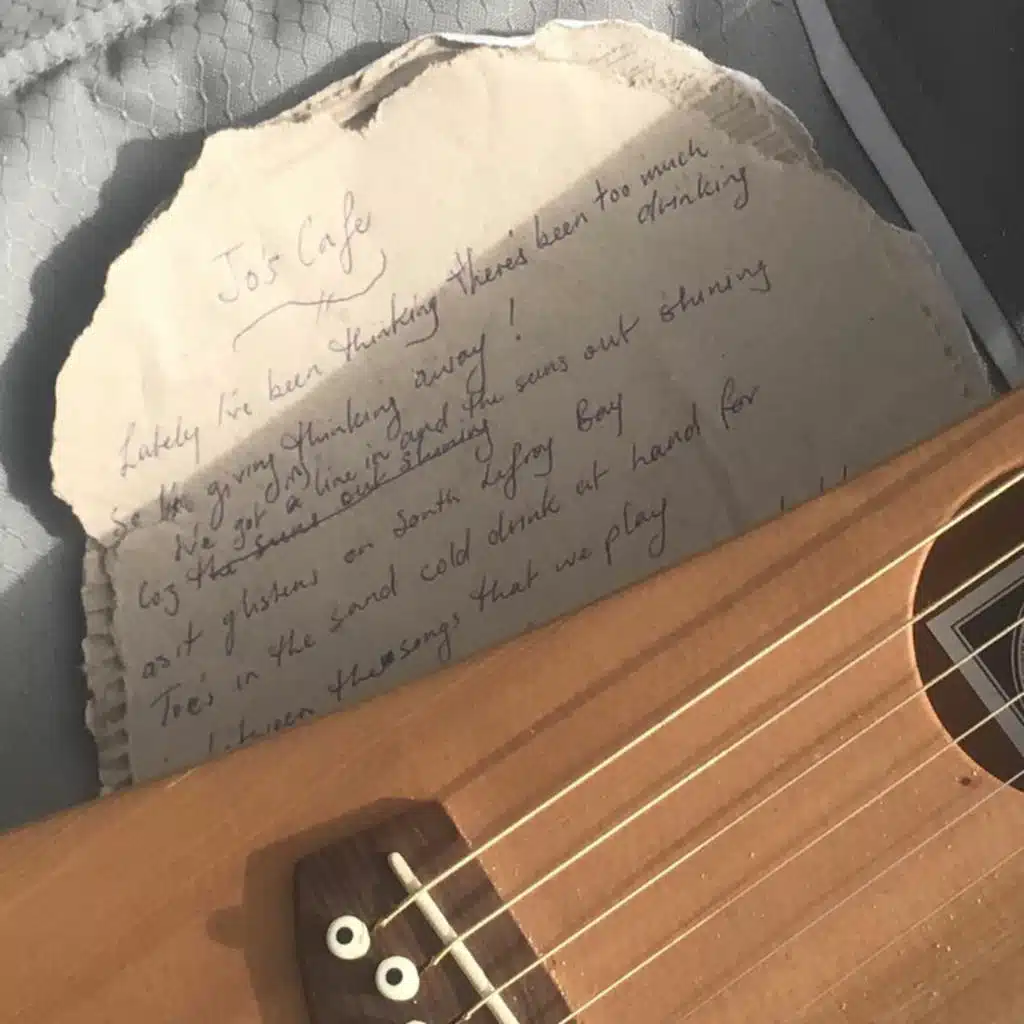 Jo's Cafe
Lately I've been thinking there's been too much
drinking
So I'm giving thinking away!
I've got a line in and the suns out shining
Coz the suns out shining
as it glistens on South Lefroy Bay
Toes in the sand cold drink at hand for
between the songs that we play